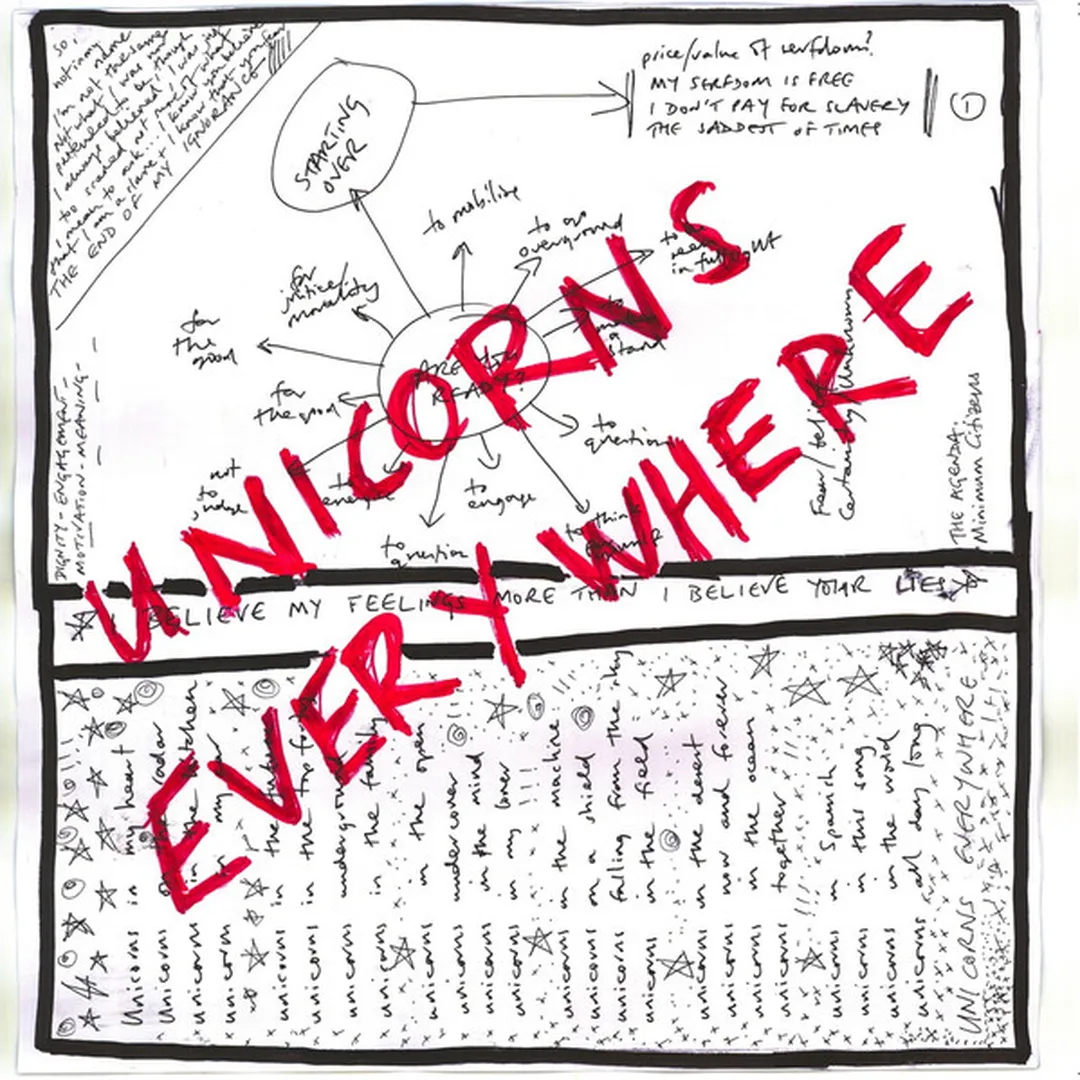 so,
not in my name
I'm not the same
Not what I was
pretended to be, though
I always believed I was
too scared not
I mean to ask.. I know you believe
that I am a slave + I know that you fear
THE END OF MY IGNORANCE
STARTING
OVER
price/value of serfdom?
MY SERFDOM IS FREE
I DON'T PAY FOR SLAVERY
THE SADDEST OF TIMES
1
to mobilize
to go
overground
to be
seen
in full light
for
justice/
morality
for
the
good
ARE YOU
READY?
to
a
stand
for
the good
to
question
not
to
judge
to
to
engage
to think
to
question
DIGNITY - ENGAGEMENT -
MOTIVATION - MEANING -
Fear/belief
Certainty/Unknown
THE AGENDA:
Minimum Citizens
UNICORNS
EVERYWHERE
I BELIEVE MY FEELINGS MORE THAN I BELIEVE YOUR LIES
Unicorns in my heart
unicorns radar
unicorns in the kitchen
unicorn in my
unicorns in the
unicorns in the top forty
unicorns underground
unicorns in the family
unicorns in the open
unicorns undercover
unicorns in the mind
unicorns in my lover
unicorns in the machine
unicorns on a shield
unicorns falling from the sky
unicorns in the field
unicorns in the desert
unicorns now and forever
unicorns in the ocean
unicorns together
unicorns in spanish
unicorns in this song
unicorns in the world
unicorns all day long
UNICORNS EVERYWHERE